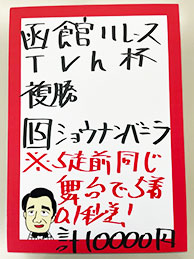 函館11レース
TVh杯
複勝
四ショウナンバニラ
※5走前同じ
舞台で5着
0.1秒差!
計10000円